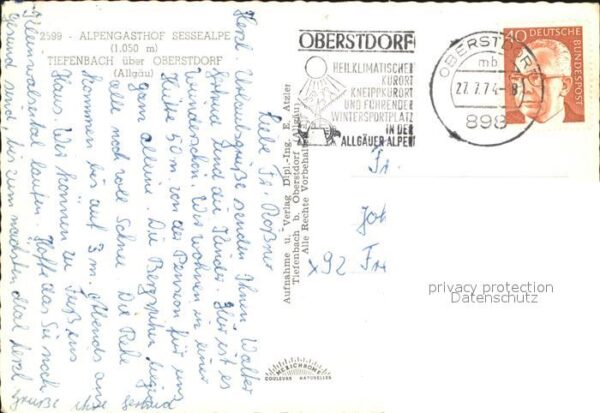 2599 - ALPENGASTHOF SESSEALPE
(1.050 m)
TIEFENBACH über OBERSTDORF
(Allgäu)
OBERSTDORF
HEILKLIMATISCHER
KURORT
KNEIPPKURORT
UND FÜHRENDER
WINTERSPORTPLATZ
IN DER
ALLGÄUER ALPEN
OBERSTDORF
mb
27.7.74-8
898
40 DEUTSCHE
BUNDESPOST
Liebe Fr. Roßner
Herzl. Urlaubsgrüße senden Ihnen Walter
Gertrud und die Kinder. Hier ist es
wunderschön. Wir wohnen in einer
Hütte 50 m von der Pension für uns
ganz alleine. Die Berge
alle noch voll Schnee. Die Rehe
kommen bis auf 3 m. Abends ans
Haus. Wir können zu Fuß ins
Kleinwalsertal laufen. Hoffe das Sie noch
gesund sind bis zum nächsten Mal herzl
Grüße ihre Gertrud
Aufnahme u. Verlag Dipl.-Ing. E. Atzler
Tiefenbach b. Oberstdorf (Allgäu)
Alle Rechte Vorbehalten
Fr.
Joh
x92 Fr
MEXICHROME
COULEURS NATURELLES
privacy protection
Datenschutz